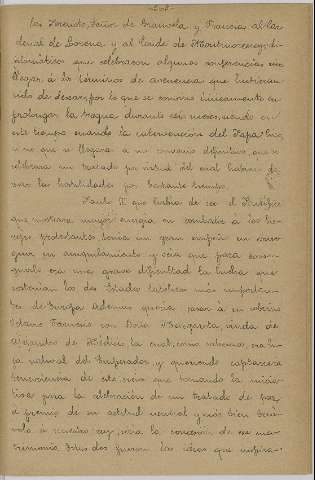 -202-
los Lorendo, Señor de Granvela y Francia al Car
denal de Lorena y al Conde de Montmorency, di
plomáticos que celebraron algunas conferencias sin
llegar á los términos de avenencia que hubieran
sido de desear, por lo que se convino únicamente en
prolongar la tregua durante seis meses, siendo en
este tiempo cuando la intervención del Papa hizo,
si no que se llegara á un convenio definitivo, que se
celebrara un tratado por virtud del cual habían de
cesar las hostilidades por bastante tiempo.
Paulo III que había de ser el Pontífice
que mostrara mayor energía en combatir á los he-
rejes protestantes, tenía un gran empeño en conse-
guir su aniquilamiento y veía que para conse-
guirlo era una grave dificultad la lucha que
sostenían los dos Estados católicos más importan-
tes de Europa. Además quería casar á su sobrino
Octavio Farnesio con Doña Margarita, viuda de
Alejandro de Médicis la cual, como sabemos, era hi-
ja natural del Emperador, y queriendo captarse la
benevolencia de este, creyó que tomando la inicia-
tiva para la celebración de un tratado de paz,
el premio de su actitud neutral y más bien favo-
rable a nuestro rey, sería la concesión de ese ma-
trimonio. Estas dos fueron las ideas que inspira-